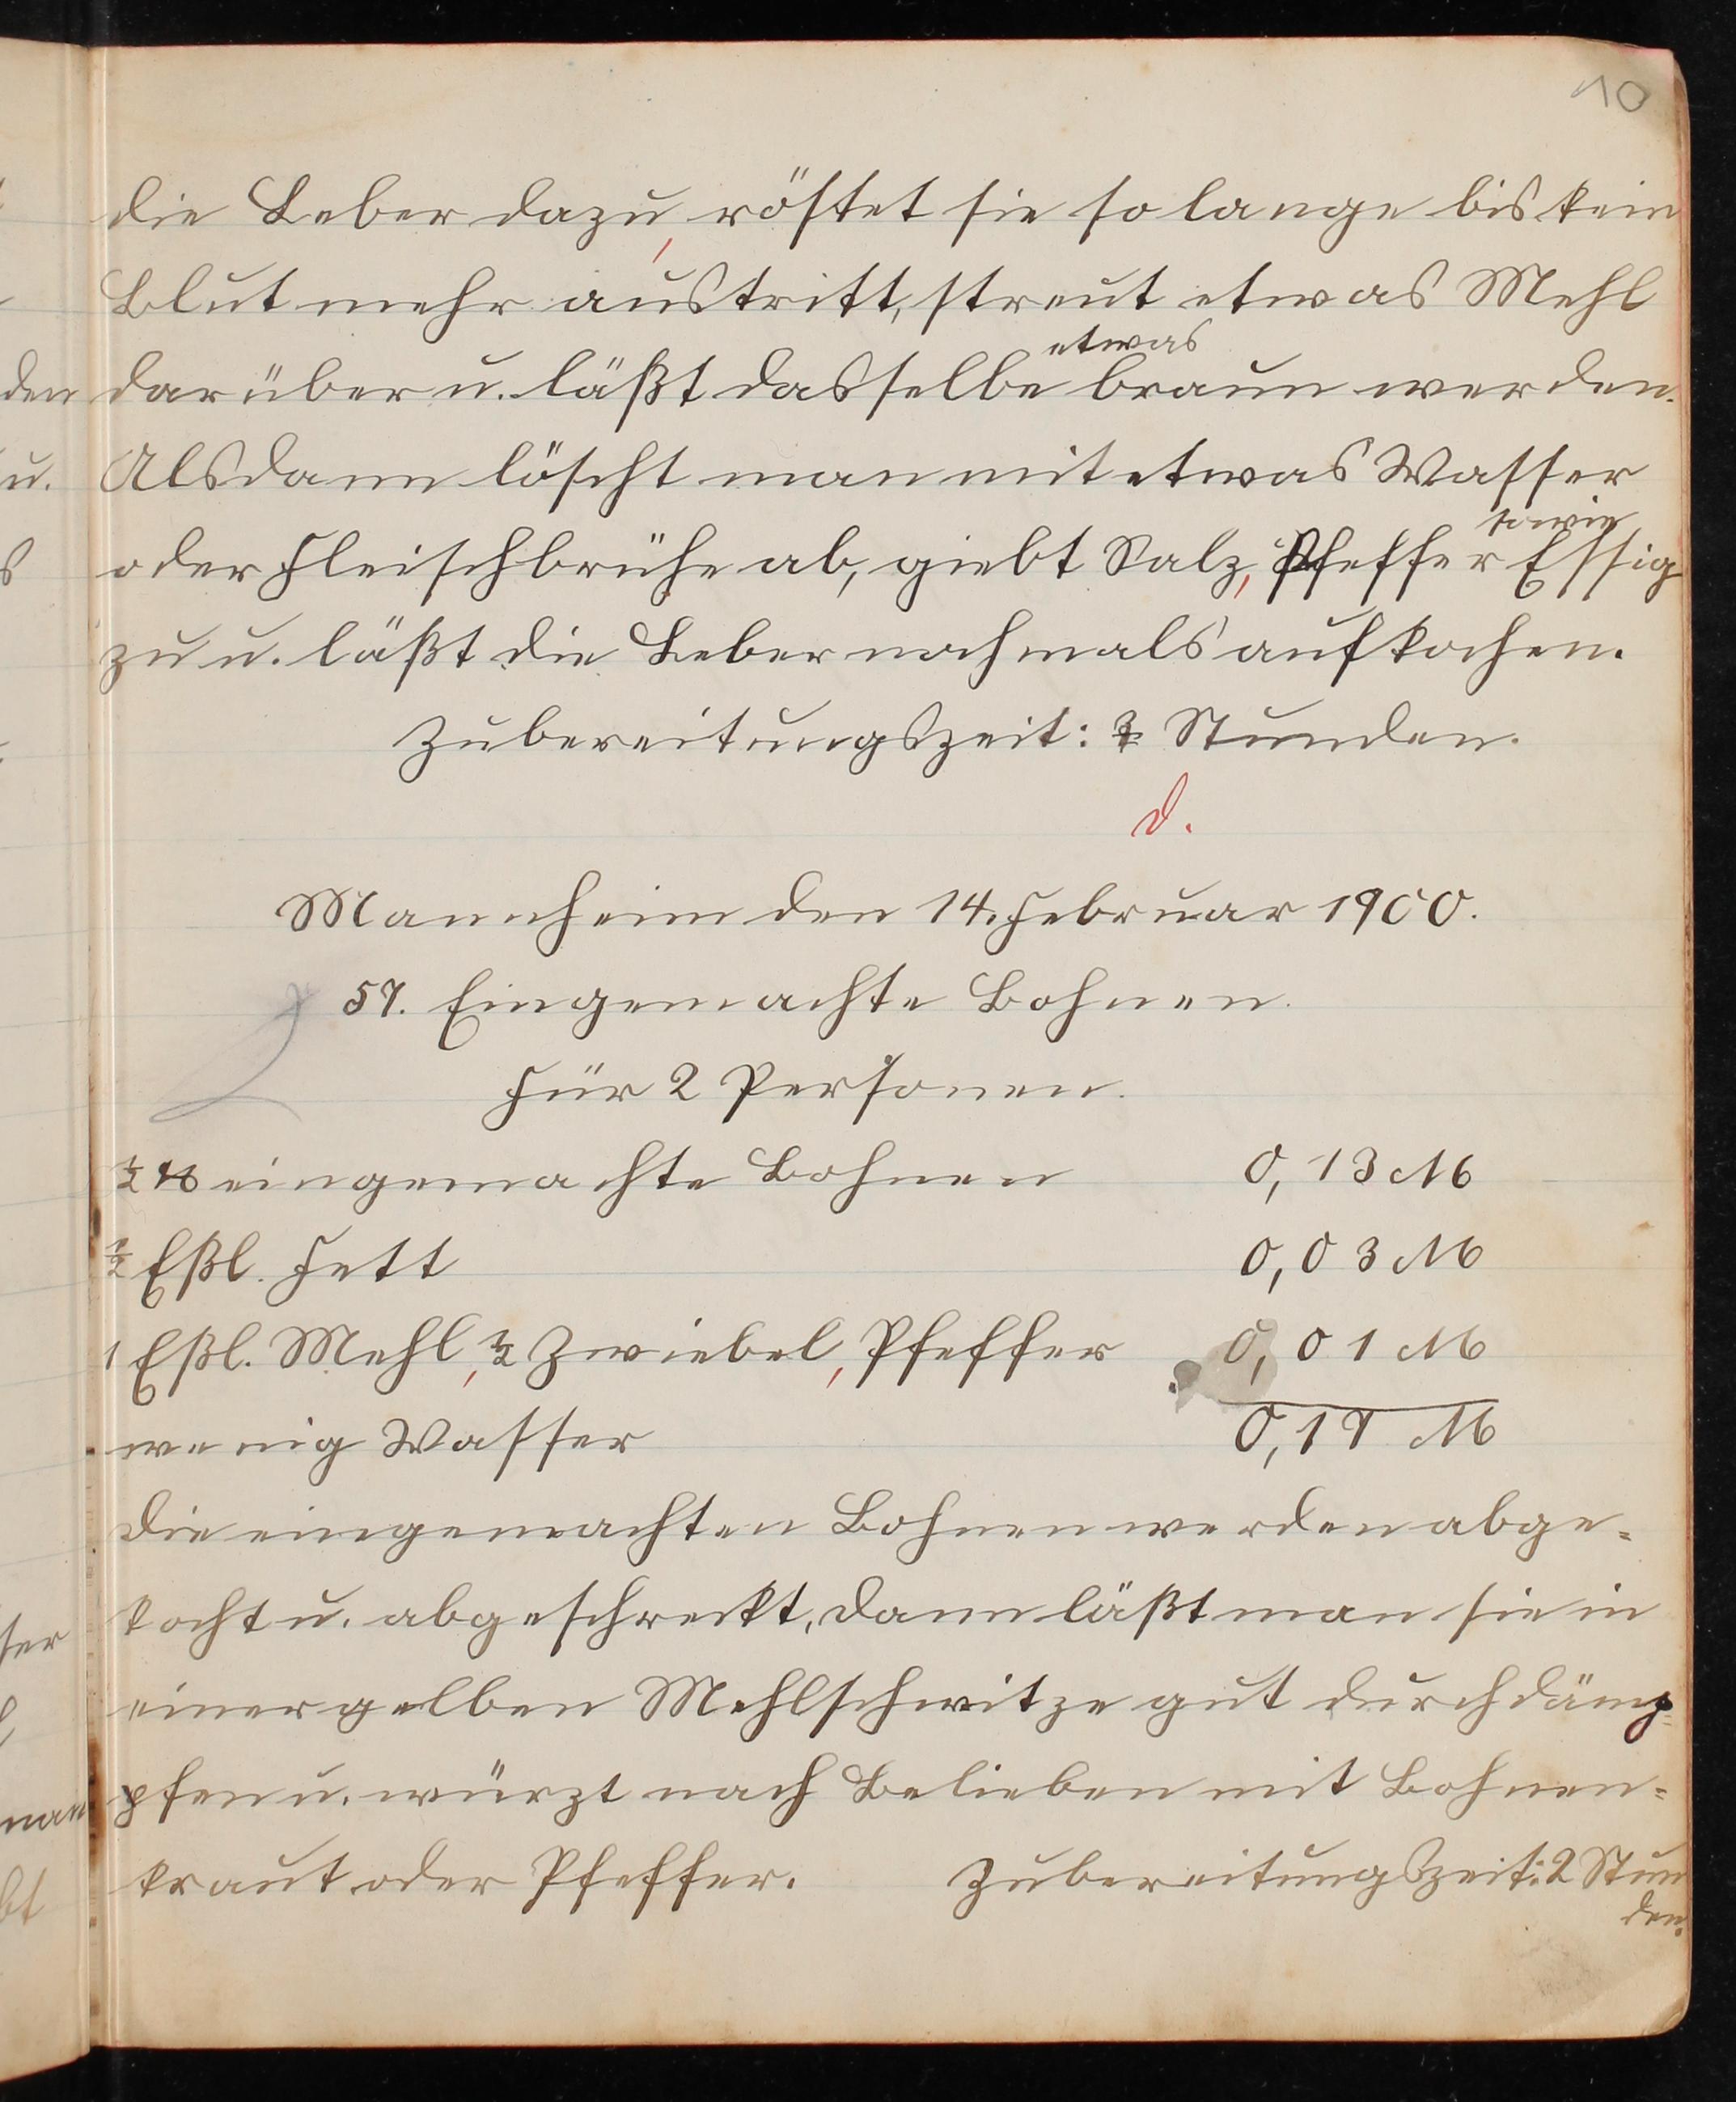 10
die Leber dazu, röstet sie so lange bis kein
Blut mehr austritt, streut etwas Mehl
etwas
darüber u. läßt dasselbe braun werden.
Alsdann löscht man mit etwas Wasser
sowie
oder Fleischbrühe ab, giebt Salz, Pfeffer Essig
zu u. läßt die Leber nochmals aufkochen.
Zubereitungszeit: Stunden.
d.
Mannheim den 14. Februar 1900.
57. Eingemachte Bohnen.
Für 2 Personen.
½ ℔ eingemachte Bohnen 0,13 M
½ Eßl. Fett 0,03 M
1 Eßl. Mehl, ½ Zwiebel, Pfeffer 0,01 M
wenig Wasser 0,17 M
Die eingemachten Bohnen werden abge-
kocht u. abgeschreckt, dann läßt man sie in
einer gelben Mehlschwitze gut durchdämp-
pfen u. würzt nach Belieben mit Bohnen-
kraut oder Pfeffer. Zubereitungszeit: 2 Stun
den.
den
u.
s
ser
man
bt